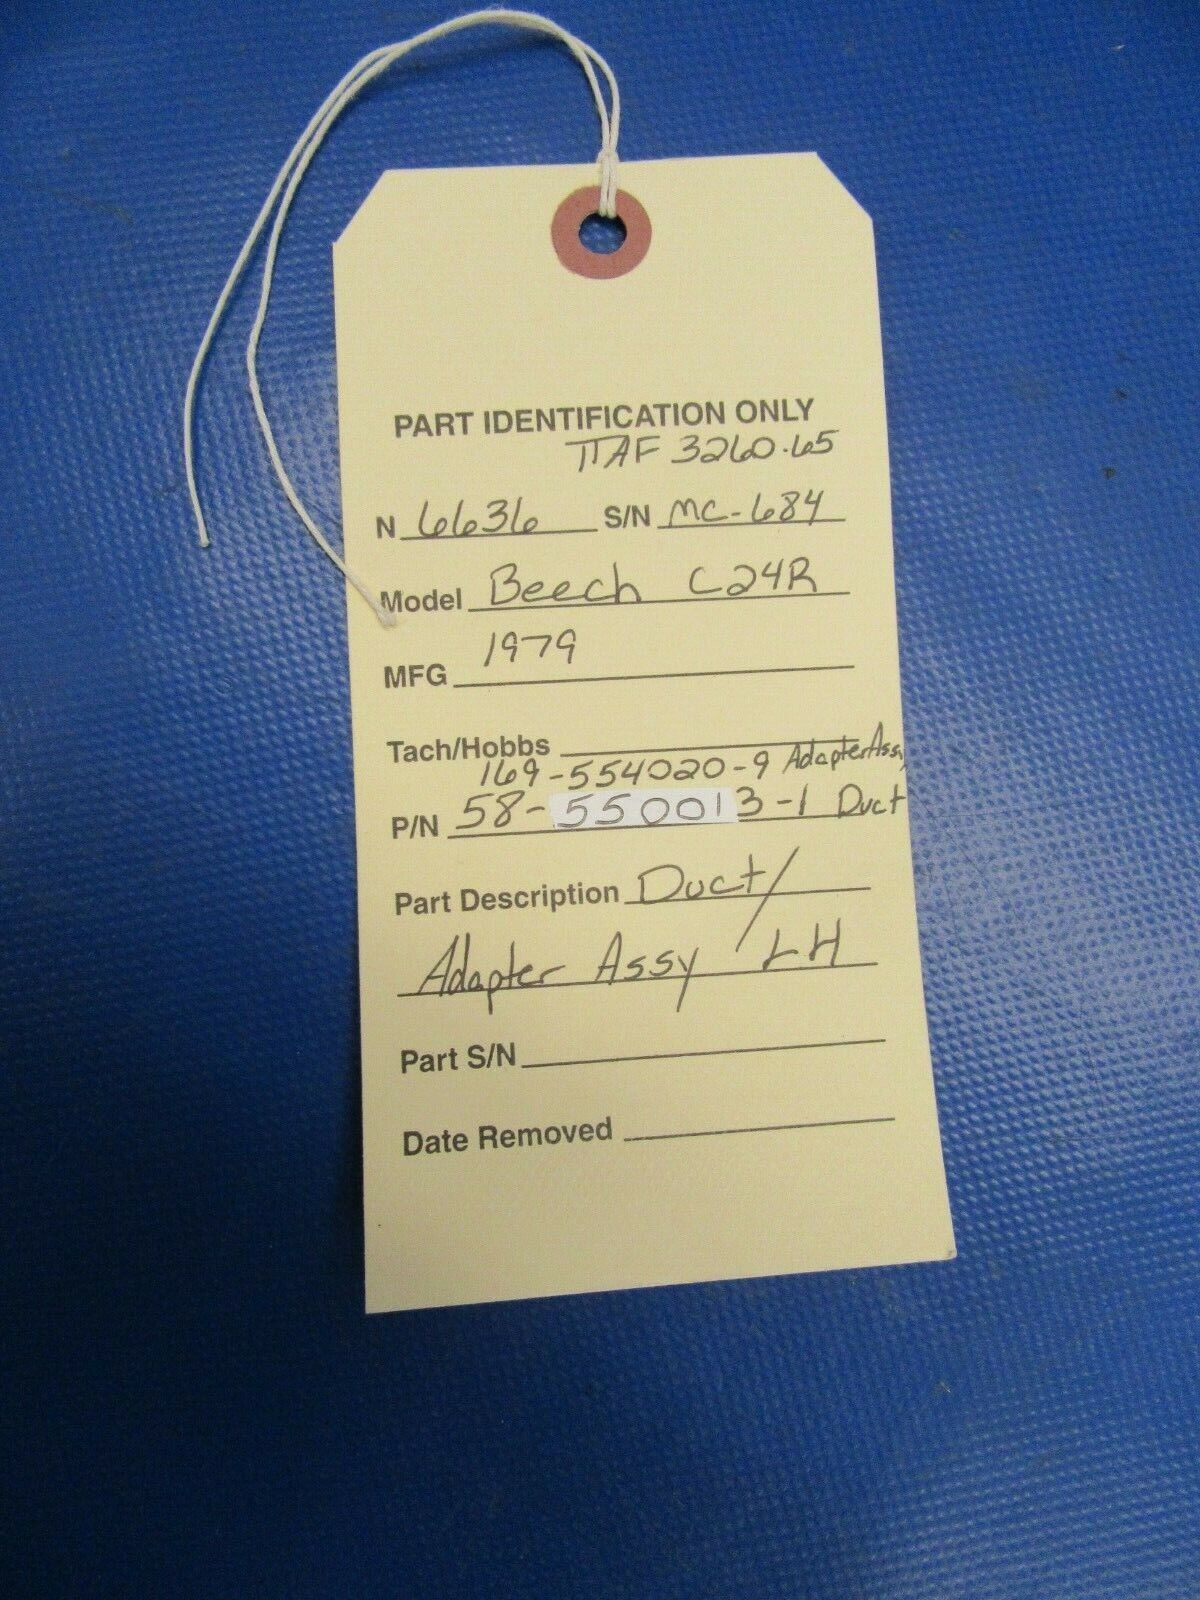 PART IDENTIFICATION ONLY
TTAF 3260.65
N 6636 S/N MC-684
Model Beech C24R
MFG 1979
Tach/Hobbs
169-554020-9 Adapter Assy
P/N 58-550013-1 Duct
Part Description Duct/
Adapter Assy / LH
Part S/N
Date Removed